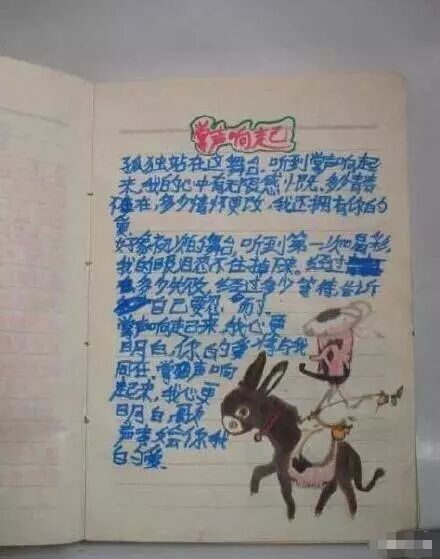 掌声响起
孤独站在这舞台，听到掌声响起
来，我的心中有无限感慨，多少青春
不在，多少情怀更改，我还拥有你的
爱
好象初次的舞台，听到第一次喝彩
我的眼泪忍不住掉下来。经过
多少失败，经过多少等待告诉
自己要忍耐
掌声响起来，我心更
明白，你的爱将与我
同在，掌声响
起来，我心更
明白，歌
声 你我
的爱